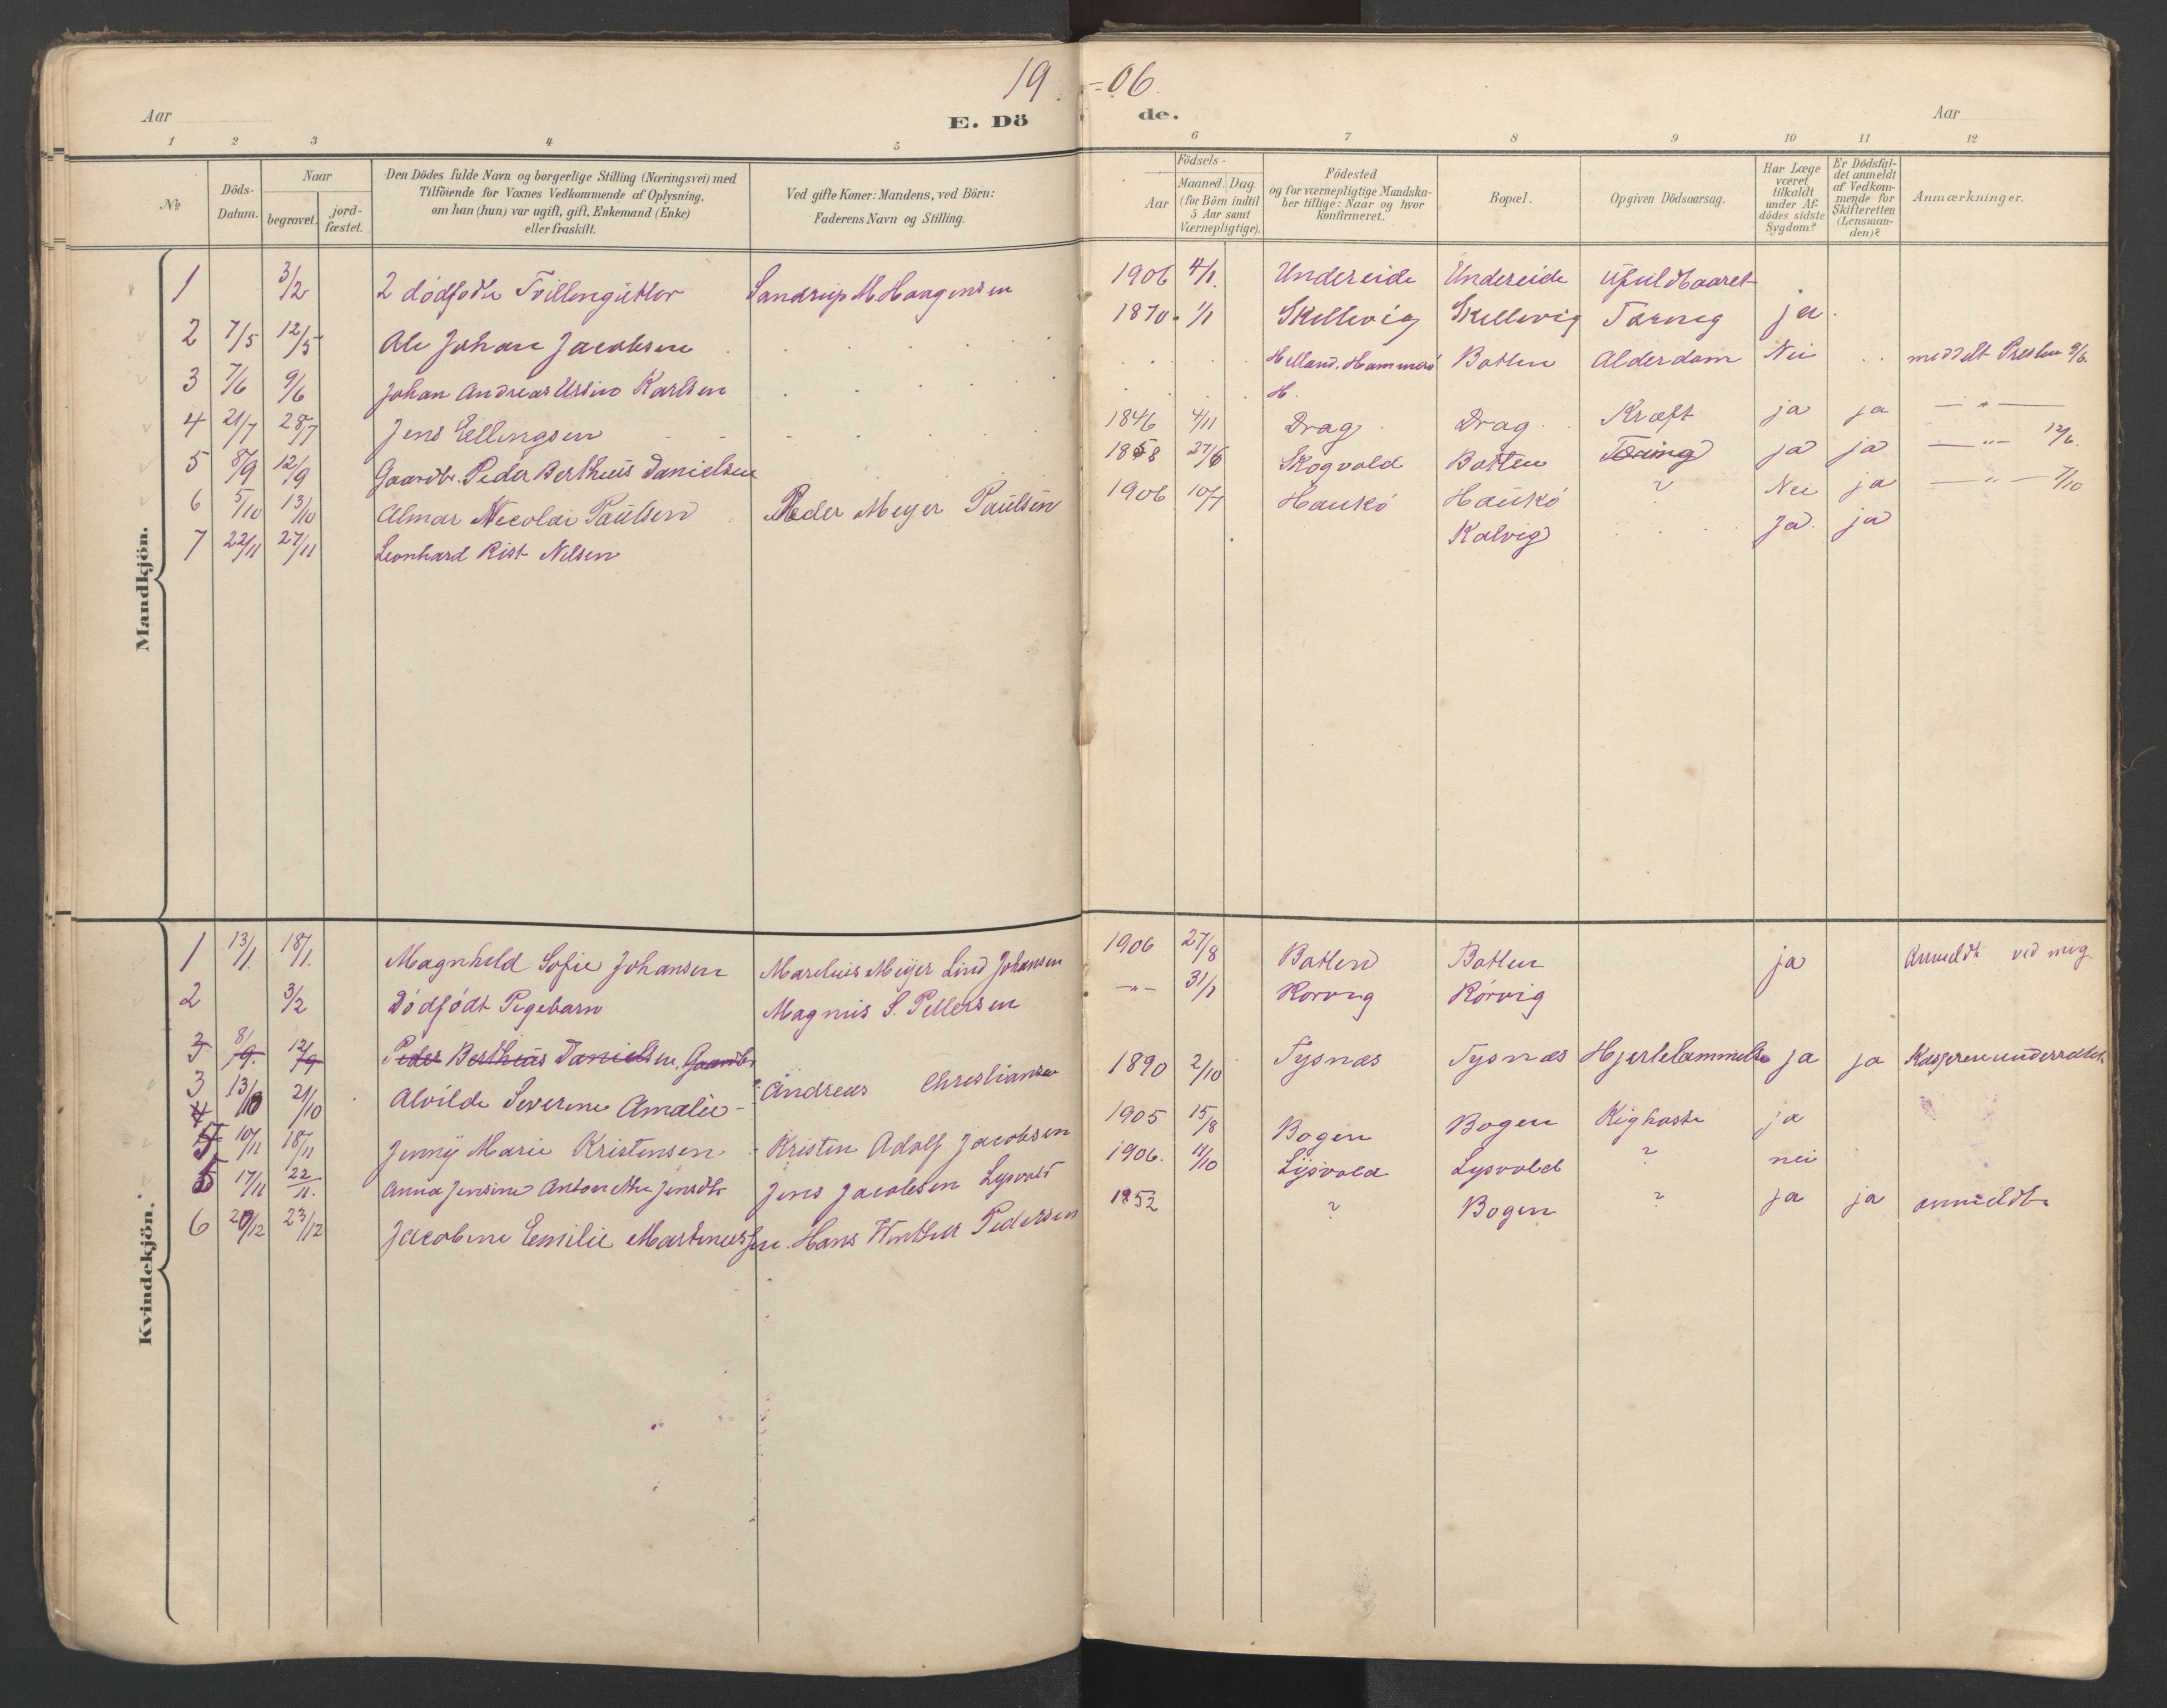 19 = 06.
Aar
E. Dö de.
Aar
1 2 3 4 5 6 7 8 9 10 11 12
№
Döds-Datum.
Naar
begravet.
jord-fæstet.
Den Dödes fulde Navn og borgerlige Stilling (Næringsvei) med
Tilföiende for Voxnes Vedkommende af Oplysning,
om han (hun) var ugift, gift, Enkemand (Enke)
eller fraskilt.
Ved gifte Koner: Mandens, ved Börn:
Faderens Navn og Stilling.
Födsels-
Aar
Maaned. Dag.
(for Börn indtil
5 Aar samt
Værnepligtige).
Födested
og for værnepligtige Mandska-
ber tillige: Naar og hvor
konfirmeret.
Bopæl.
Opgiven Dödsaarsag.
Har Læge
været
tilkaldt
under Af-
dödes sidste
Sygdom?
Er Dödsfal-
det anmeldt
af Vedkom-
mende for
Skifteretten
(Lensman-
den)?
Anmærkninger.
Mandkjön.
1 3/2 2 dødfødte Tvillingutter Sandrup M Haagensen 1906 4/1. Undereide Undereide ufuldbaaret
2 7/5 12/5 Ole Johan Jacobsen 1870. 1/1 Skellevig Skellevig Tæring ja.
3 7/6 9/6 Johan Andreas Ursin Karlsen Helland. Hammerö H. Botten Alderdom Nei meddelt Presten 9/6
4 21/7 28/7 Jens Ellingsen 1846 4/11 Drag Drag Kræft ja ja — " —
5 8/9 12/9 Gaardbr. Peder Bertheus Danielsen 1858 27/6 Skogvold Botten Tæring ja ja — " — 12/6.
6 5/10 13/10 Almar Nicolai Paulsen Peder Meyer Paulsen 1906 10/7 Haukö Haukö ? Nei ja — " — 7/10
7 22/11 27/11 Leonhard Rist Nilsen Kalvig Ja. ja
Kvindekjön.
1 13/1. 18/1. Magnhild Sofie Johansen Marelius Meyer Lind Johansen 1906 27/8 Botten Botten ja Anmeldt ved mig.
2 3/2 Dödfödt Pigebarn Magnus S. Pettersen — " — 31/1 Korvig Körvig
3 8/9. 12/9 Peder Bertheus Danielsen, Gaardbr
3 13/10 21/10 Alvilde Severine Amalie - Andreas Christiansen 1890 2/10 Tysnæs Tysnæs Hjertelammelse ja ja
4 10/11 18/11 Jenny Marie Kristensen - Kristen Adolf Jacobsen 1905 15/8 Bogen Bogen Kighoste ja
5 17/11 22/11. Anna Jensine Antonette Jensdtr Jens Jacobsen Lysvold 1906. Lysvold Lysvold ? nei
6 20/12 23/12 Jacobine Emilie Martinussen. Hans Winther Pedersen 1852 ? Bogen ? ja ja anmeldt.